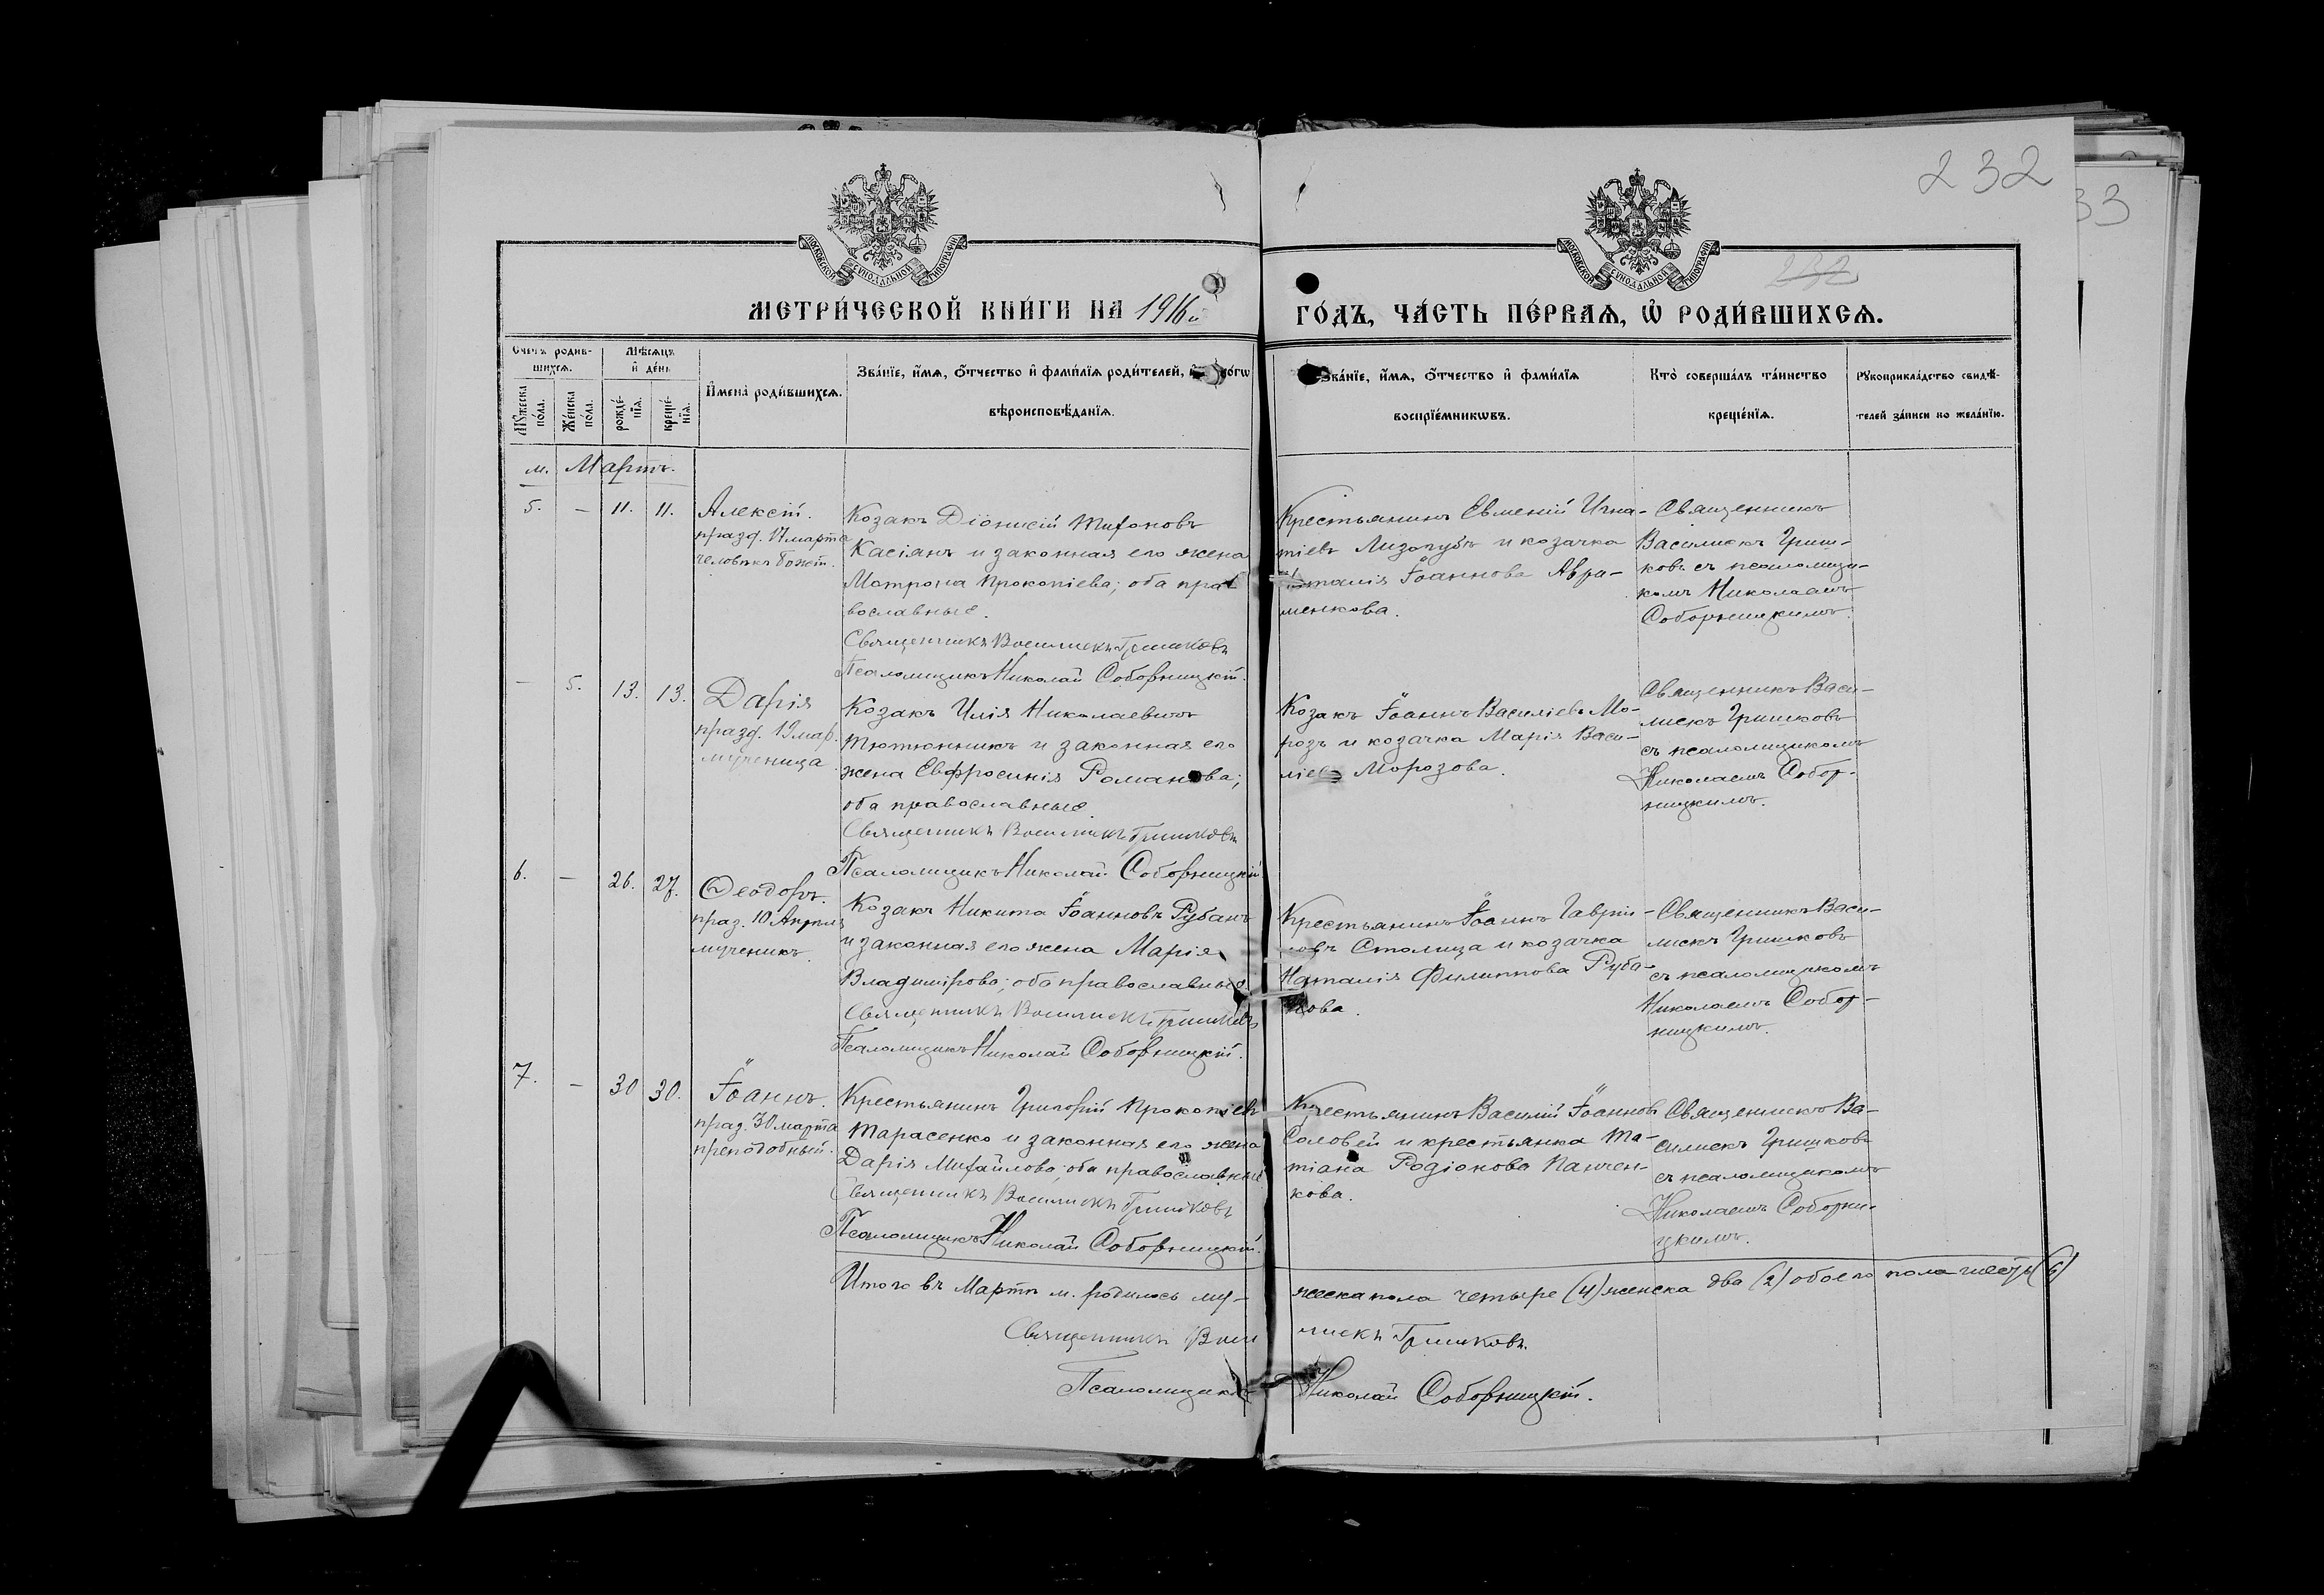 232
33
МОСКОВСКОЙ СѴНОДАЛЬНОЙ ТИПОГРАФІИ
МОСКОВСКОЙ СѴНОДАЛЬНОЙ ТИПОГРАФІИ
232
МЕТРИ́ЧЕСКОЙ КНИ́ГИ НА 1916й
ГО́ДЪ, ЧА́СТЬ ПЕ́РВАѦ, Ѡ РОДИ́ВШИХСѦ.
Счетъ родив-
шихсѧ.
Мѹжеска
по́ла.
Же́нска
по́ла.
Мѣсѧцъ
и де́нь
рожде́-
нїѧ.
креще́-
нїѧ.
Имена̀ роди́вшихсѧ.
Зва́нїе, и́мѧ, о́тчество и фами́лїѧ роди́телей,
вѣроисповѣ́данїѧ.
Зва́нїе, и́мѧ, о́тчество и фами́лїѧ
воспрїе́мникѡвъ.
Кто̀ соверша́лъ та́инство
креще́нїѧ.
Рꙋкоприкла́дство свидѣ́-
телей за́писи по жела́нїю.
м. Мартъ.
5. — 11. 11.
Алексій.
празд. 17 марта
человѣкъ Божій.
Козакъ Діонисій Тифоновъ
Касіянъ и законная его жена
Матрона Прокопіева; оба пра-
вославные.
Священникъ Василискъ Гришковъ
Псаломщикъ Николай Соборницкій.
Крестьянинъ Евменій Игна-
тіевъ Лизогубъ и козачка
Наталія Іоаннова Авра-
менкова.
Священникъ
Василискъ Гриш-
ковъ съ псаломщи-
комъ Николаемъ
Соборницкимъ.
— 5. 13. 13.
Дарія
празд. 19 мар.
мученица
Козакъ Илія Николаевичъ
Тютюнникъ и законная его
жена Евфросинія Романова;
оба православные.
Священникъ Василискъ Гришковъ
Псаломщикъ Николай Соборницкій
Козакъ Іоаннъ Василіевъ Мо-
розъ и козачка Марія Васи-
ліева Морозова.
Священникъ Васи-
лискъ Гришковъ
съ псаломщикомъ
Николаемъ Собор-
ницкимъ.
6. — 26. 27.
Ѳеодоръ.
праз. 10 Апрѣля
мученикъ.
Козакъ Никита Іоанновъ Рубанъ
и законная его жена Марія
Владимірова; оба православные
Священникъ Василискъ Гришковъ
Псаломщикъ Николай Соборницкій.
Крестьянинъ Іоаннъ Гаврии-
ловъ Столица и козачка
Наталія Филиппова Руба-
нова.
Священникъ Васи-
лискъ Гришковъ
съ псаломщикомъ
Николаемъ Собор-
ницкимъ.
7. — 30 30.
Іоаннъ.
праз. 30 марта
преподобный.
Крестьянинъ Григорій Прокопіевъ
Тарасенко и законная его жена
Дарія Михайлова; оба православные
Священникъ Василискъ Гришковъ
Псаломщикъ Николай Соборницкій.
Крестьянинъ Василій Іоанновъ
Соловей и крестьянка Та-
тіана Родіонова Панчен-
кова.
Священникъ Ва-
силискъ Гришковъ
съ псаломщикомъ
Николаемъ Соборни-
цкимъ.
Итого въ Мартѣ м. родилось му-
жеска пола четыре (4) женска два (2) обоего пола шесть (6)
Священникъ Васи
лискъ Гришковъ.
Псаломщикъ
Николай Соборницкій.